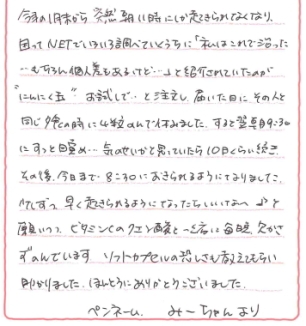 今年の1月から突然朝11時にしか起きられなくなり、
困ってNETでいろいろ調べていくうちに「私はこれで治った
…もちろん個人差もあるけど…」と紹介されていたのが
"にんにく玉" お試しで…と注文し、届いた日にその人と
同じ夕飯の時に4粒のんでみました。すると翌朝9:30
にすっと目覚め…気のせいかと思っていたら10日くらい続き、
その後、今日まで8:30におきられるようになりました。
早く起きられるようになったらいいな〜♪と
願いつつ、ビタミンCのクエン酸と一緒に毎晩、欠かさ
ずのんでいます ソフトカプセルの恐しさも教えてもらい
助かりました。ほんとうにありがとうございました。
ペンネーム、みーちゃんより